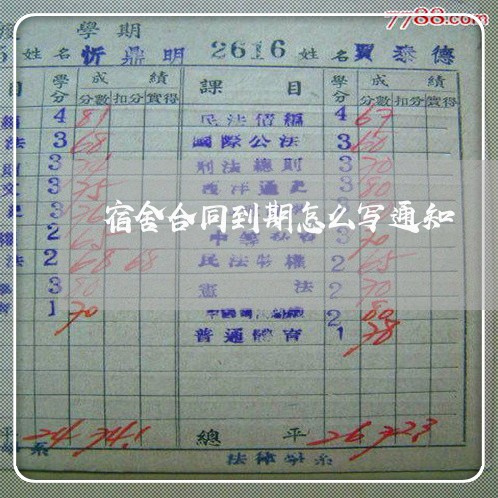 7788.com
學期
姓名 忻鼎明 2616 姓名 賈泰德
目 學分 成績 課目 學分 成績
分數 扣分 實得 分數 扣分 實得
4 81 民法債編 4 67
法 3 68 國際公法 3 60
3 刑法總則 3 70
3 75 西洋通史 3 80
3 3 70
宿舍合同到期怎么写通知
2 65
法 2 68 68 民法物權 2 65
3 80 憲法 2 70
1 70 2 80
普通體育 1 78
平 24 74.1 總平 26 72.3
系 法律學系